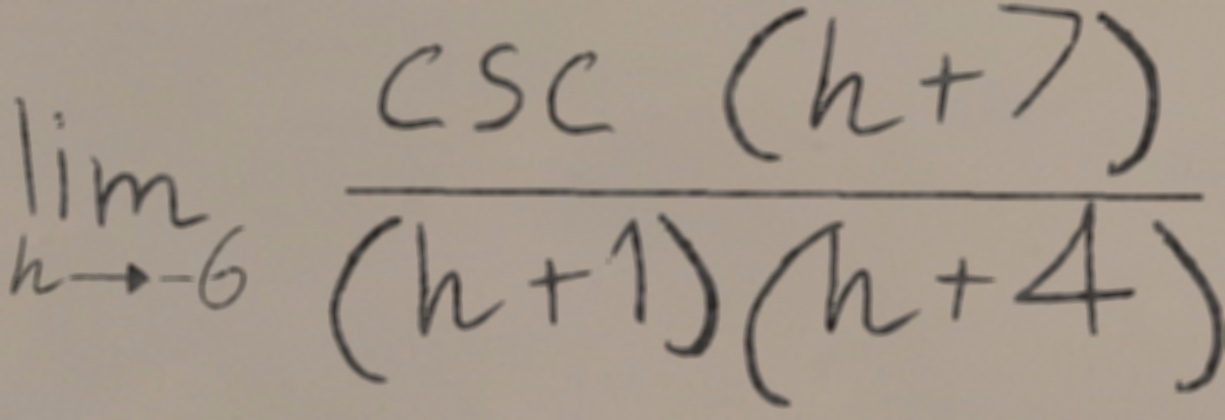 lim h→-6 csc (h+7) / (h+1)(h+4)